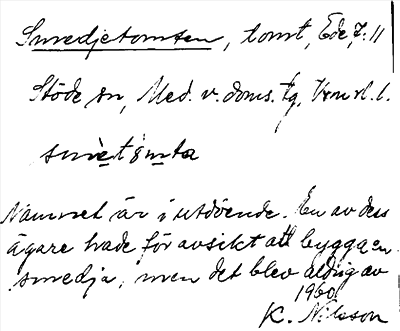 Smedjetomten, tomt, Ede, 7:11
Stöde sn, Med. v. doms. tg, Vrnrl. l.
smetsmta
Namnet är i utdöende. En av dess
ägare hade för avsikt att bygga en
smedja, men det blev aldrig av
1960
K. Nilsson